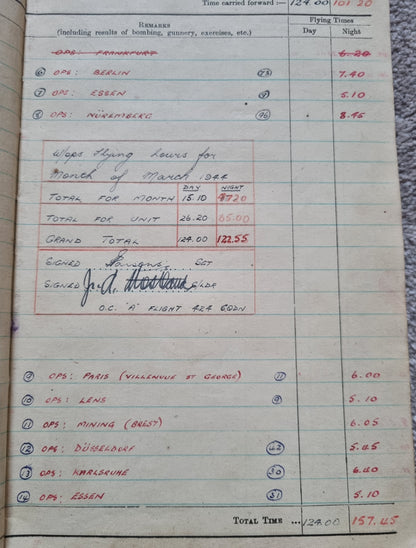 Time carried forward :— 124.00 101.20
REMARKS Flying Times
(including results of bombing, gunnery, exercises, etc.) Day Night
OPS: FRANKFURT 6.20
6 OPS: BERLIN 73 7.40
7 OPS: ESSEN 9 5.10
8 OPS: NÜREMBERG 96 8.45
W/ops flying hours for
Month of March 1944
DAY NIGHT
TOTAL FOR MONTH 15.10
TOTAL FOR UNIT 26.20 65.00
GRAND TOTAL 124.00 122.55
SIGNED SGT
SIGNED S/LDR
O.C. 'A' FLIGHT 424 SQDN
9 OPS: PARIS (VILLENUVE ST GEORGE) 11 6.00
10 OPS: LENS 9 5.10
11 OPS: MINING (BREST) 6.05
12 OPS: DÜSSELDORF 42 5.45
13 OPS: KARLSRUHE 30 6.40
14 OPS: ESSEN 31 5.10
TOTAL TIME ... 124.00 157.45